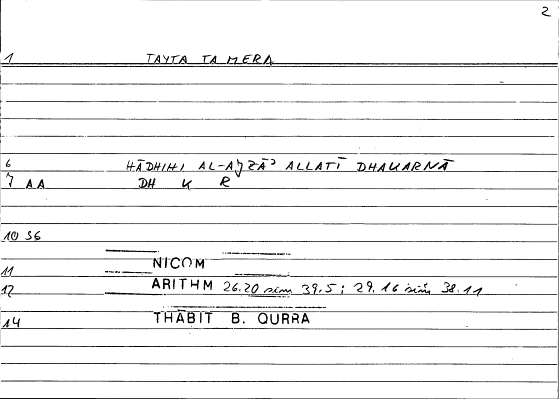 2
1 TAYTA TA MERA
6 HĀDHIHI AL-AJZĀʾ ALLATĪ DHAKARNĀ
7 AA DH K R
10 36
11 NICOM
12 ARITHM 26.20 sim 39.5; 29.16 sim 38.11
14 THĀBIT B. QURRA